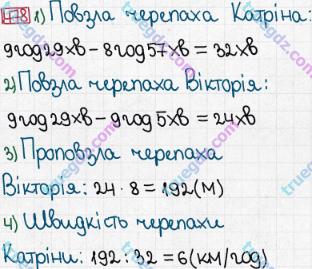 478 1) Повзла черепаха Катріна:
9год29хв – 8год57хв = 32хв
2) Повзла черепаха Вікторія:
9год29хв – 9год5хв = 24хв
3) Проповзла черепаха
Вікторія: 24 · 8 = 192(м)
4) Швидкість черепахи
Катріни: 192 : 32 = 6(км/год)